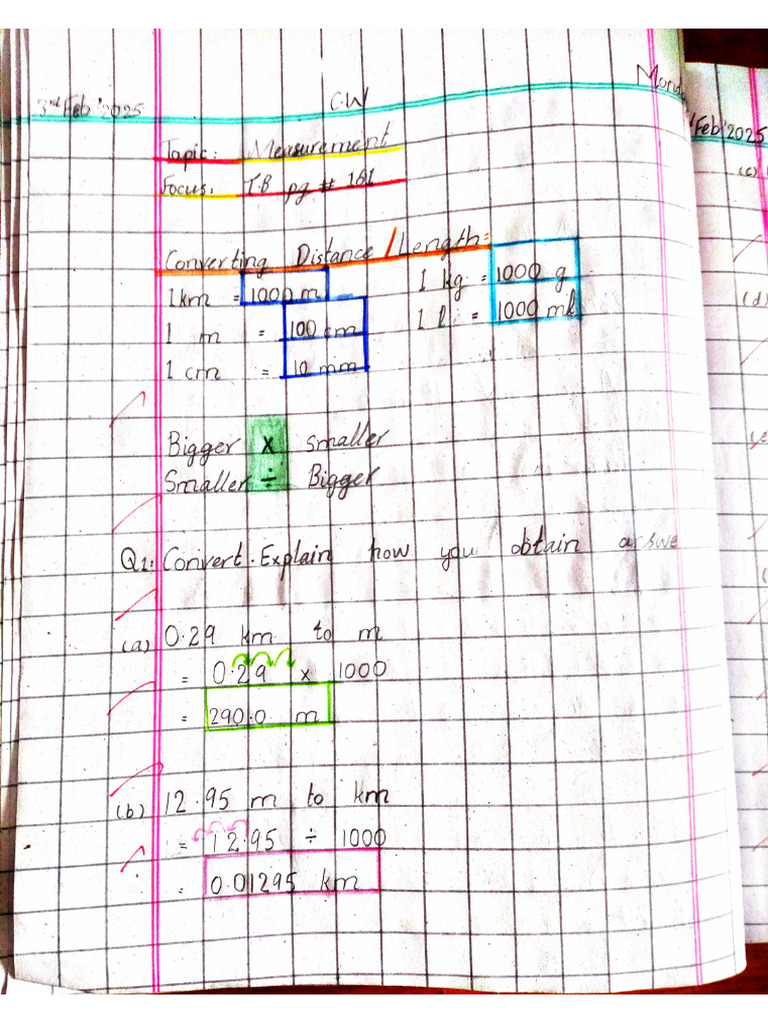 3rd Feb '2025 C.W Mond
Topic: Measurement
Focus: T.B pg # 161
Converting Distance / Length:
1km = 1000 m
1 m = 100 cm
1 cm = 10 mm
1 kg = 1000 g
1 l = 1000 ml
Bigger × smaller
Smaller ÷ Bigger
Q1: Convert. Explain how you obtain answe
(a) 0.29 km to m
= 0.29 × 1000
= 290.0 m
(b) 12.95 m to km
= 12.95 ÷ 1000
= 0.01295 km
Feb '2025
(c)
(d)